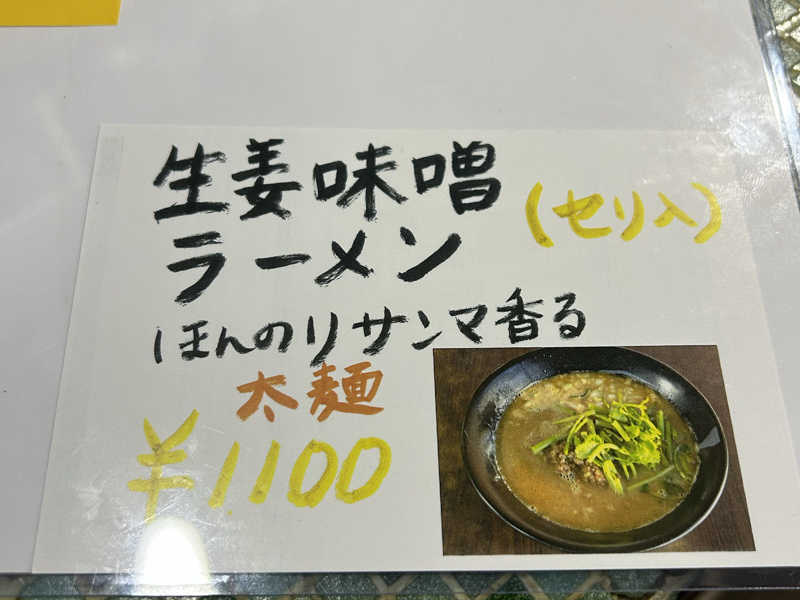 生姜味噌
ラーメン
(セリ入)
ほんのりサンマ香る
太麺
¥1,100